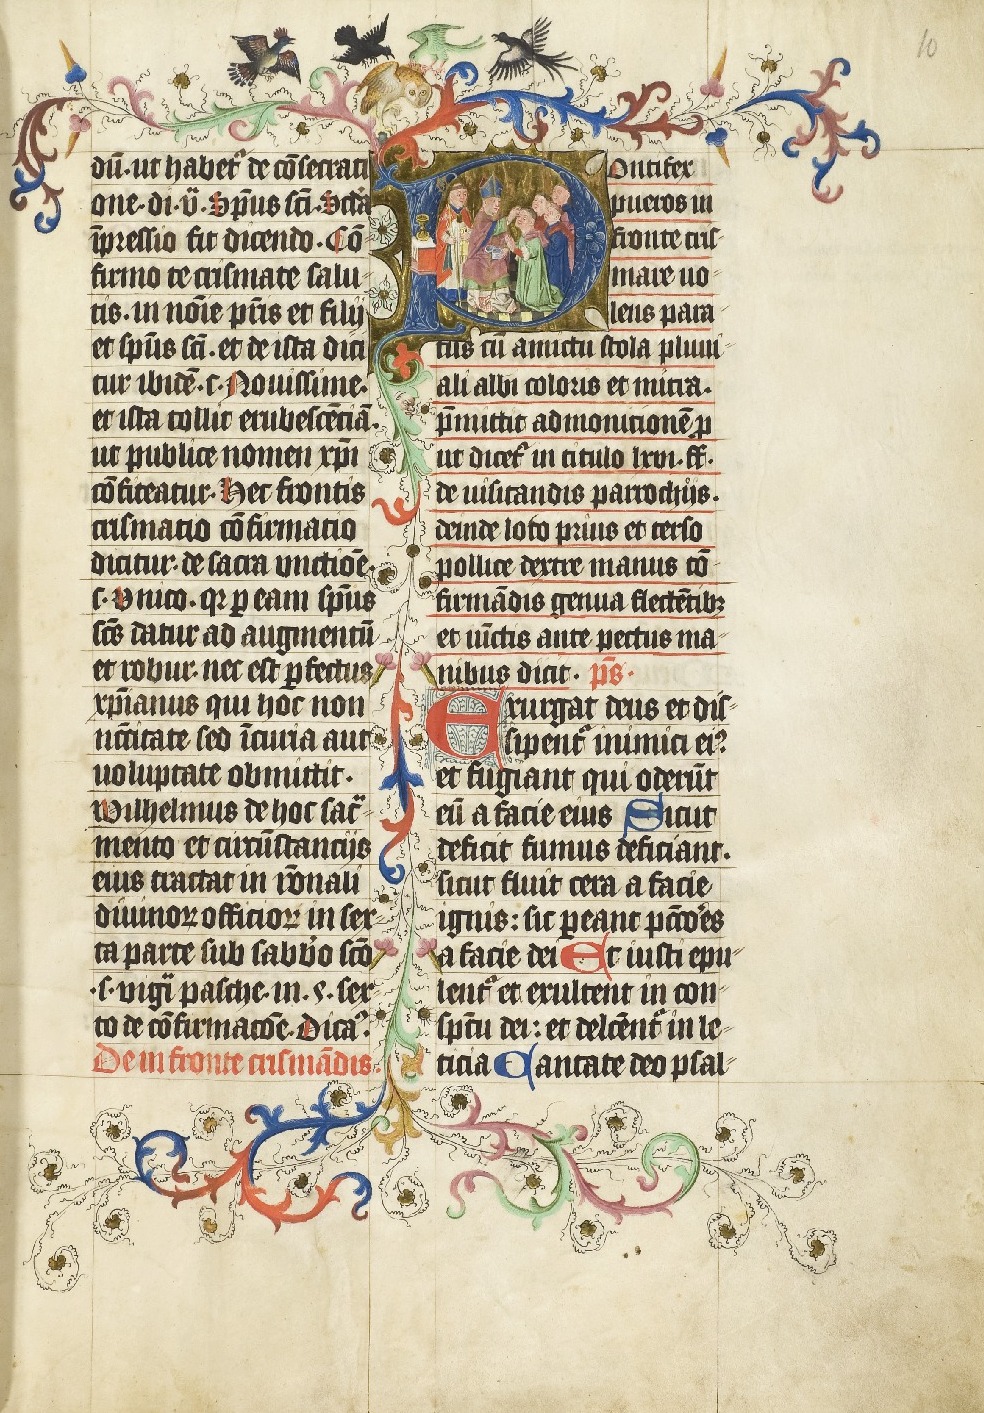 10
dū. ut habet᷑ de cōsecrati
one. di. v̄. Spūs scī. Scđa
īpressio fit dicendo. Cō
firmo te crismate salu
tis. in noīe pr̄is et filij
et spūs scī. et de ista dici
tur ibidē. c. Nouissime.
et ista tollit erubescēciā.
ut publice nomen xp̄i
cōfiteatur. Hec frontis
crismatio cōfirmatio
dicitur. de sacra vnctiōe.
c. Vnico. qꝛ ꝑ eam spūs
scūs datur ad augmentū
et robur. nec est ꝑfectus
xp̄ianus qui hoc non
nccītate sed īcuria aut
uoluptate obmittit.
Wilhelmus de hoc sac̄
mento et circūstancijs
eius tractat in rōnali
diuinoꝝ officioꝝ in sex
ta parte sub sabb̄o scō
.s. vigiłi pasche. in. v. sex
to de cōfirmacōe. Dicaꝰ
De in fronte crismādis.
Pontifex
pueros in
fronte cris
mare uo
lens para
tus cū amictu stola pluui
ali albi coloris et mitra.
p̄mittit admonicionē ꝓ
ut dicet᷑ in titulo lxvi. ff.
de uisitandis parrochijs.
deinde loto prius et terso
pollice dextre manus cō
firmādis genua flectētibꝫ
et iūctis ante pectus ma
nibus dicit. p̄s.
Exurgat deus et dis
sipent᷑ inimici eiꝰ
et fugiant qui oderūt
eū a facie eius Sicut
deficit fumus deficiant.
sicut fluit cera a facie
ignis: sic ꝑeant pc̄cōres
a facie dei Et iusti epu
lent᷑ et exultent in con
spc̄tu dei: et delcēnt᷑ in le
ticia Cantate deo psal